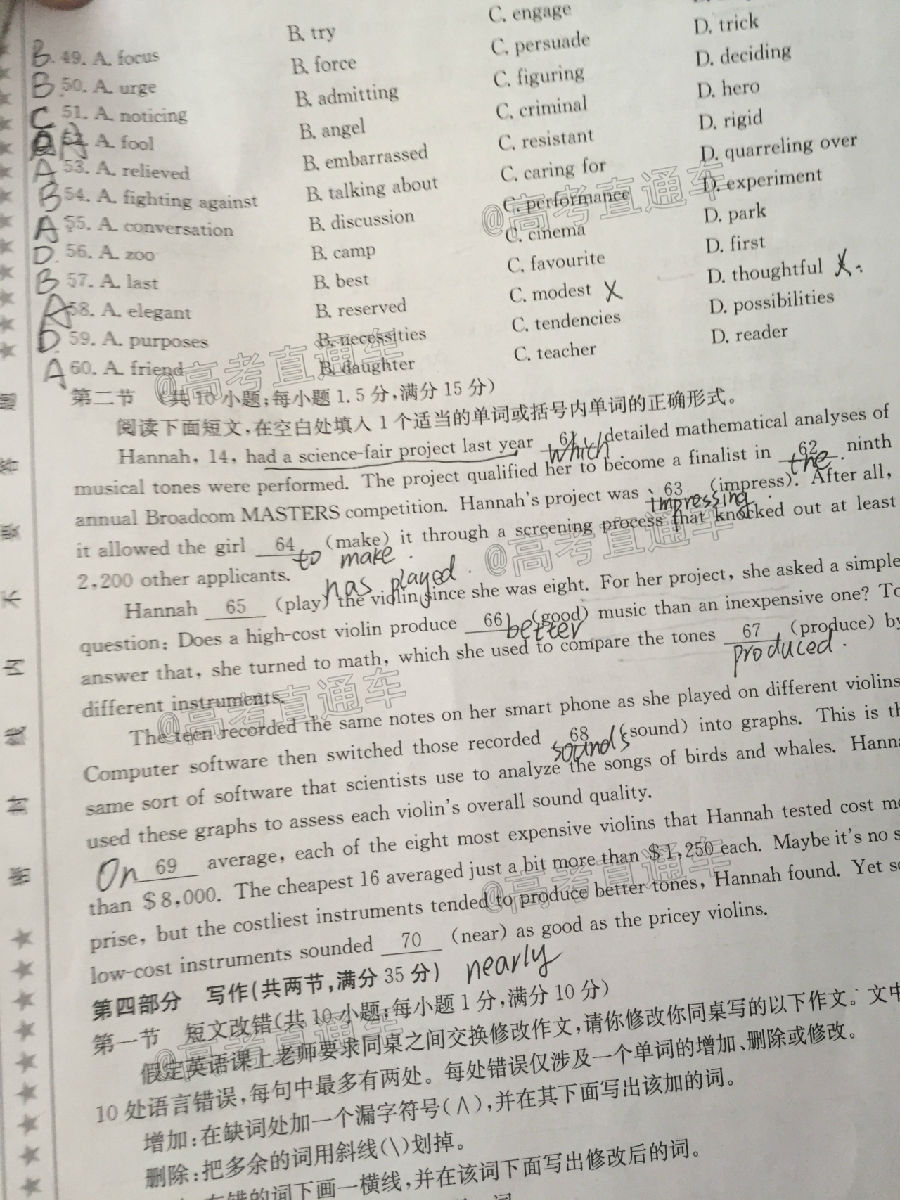 C. engage
B. try D. trick
B. 49. A. focus B. force C. persuade D. deciding
B 50. A. urge B. admitting C. figuring D. hero
C 51. A. noticing B. angel C. criminal D. rigid
A A. fool B. embarrassed C. resistant D. quarreling over
A 53. A. relieved B. talking about C. caring for D. experiment
B 54. A. fighting against B. discussion C. performance D. park
A 55. A. conversation B. camp C. cinema D. first
D 56. A. zoo B. best C. favourite D. thoughtful X.
B 57. A. last B. reserved C. modest X D. possibilities
A 58. A. elegant B. necessities C. tendencies D. reader
D. 59. A. purposes B. daughter C. teacher
A 60. A. friend
第二节 (共10小题;每小题1.5分,满分15分)
阅读下面短文,在空白处填入1个适当的单词或括号内单词的正确形式。
Hannah, 14, had a science-fair project last year 61 which, detailed mathematical analyses of
musical tones were performed. The project qualified her to become a finalist in 62 the ninth
annual Broadcom MASTERS competition. Hannah's project was 63 (impress). After all,
impressing.
it allowed the girl 64 (make) it through a screening process that knocked out at least
to make.
2,200 other applicants.
has played.
Hannah 65 (play) the violin since she was eight. For her project, she asked a simple
question: Does a high-cost violin produce 66 (good) music than an inexpensive one? To
better
answer that, she turned to math, which she used to compare the tones 67 (produce) by
produced.
different instruments.
The teen recorded the same notes on her smart phone as she played on different violins
Computer software then switched those recorded 68 (sound) into graphs. This is th
sounds
same sort of software that scientists use to analyze the songs of birds and whales. Hanna
used these graphs to assess each violin's overall sound quality.
On 69 average, each of the eight most expensive violins that Hannah tested cost m
than $8,000. The cheapest 16 averaged just a bit more than $1,250 each. Maybe it's no s
prise, but the costliest instruments tended to produce better tones, Hannah found. Yet s
low-cost instruments sounded 70 (near) as good as the pricey violins.
nearly
第四部分 写作(共两节,满分35分)
第一节 短文改错(共10小题;每小题1分,满分10分)
假定英语课上老师要求同桌之间交换修改作文,请你修改你同桌写的以下作文。文中
10处语言错误,每句中最多有两处。每处错误仅涉及一个单词的增加、删除或修改。
增加:在缺词处加一个漏字符号(∧),并在其下面写出该加的词。
删除:把多余的词用斜线(\)划掉。
在错的词下画一横线,并在该词下面写出修改后的词。
@高考直通车
@高考直通车
@高考直通车
@高考直通车
@高考直通车
@高考直通车